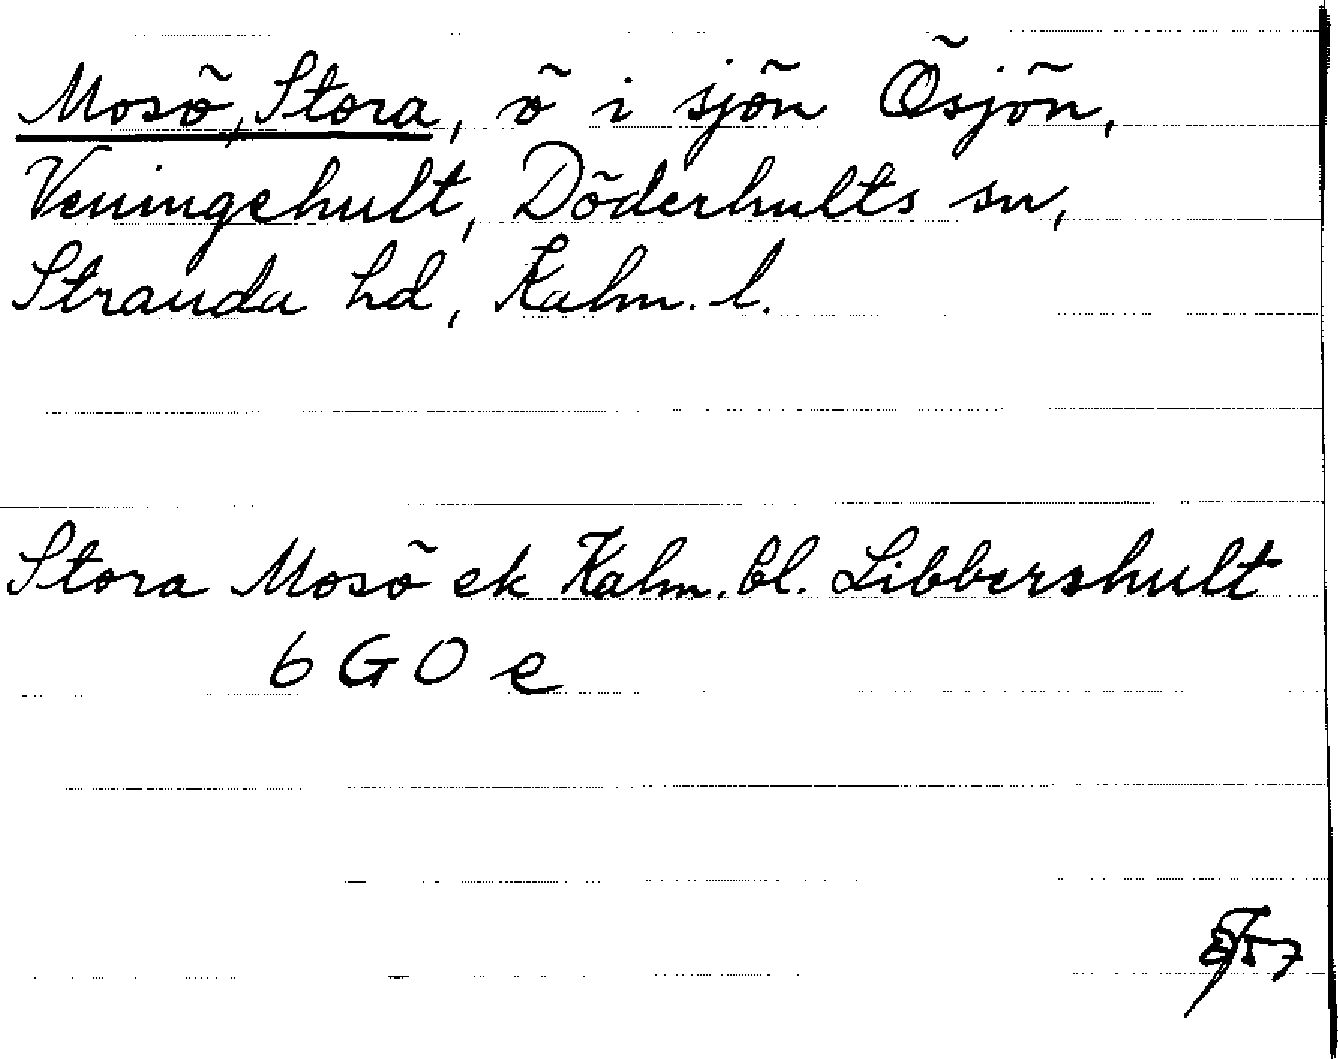 Mosö, Stora, ö i sjön Ösjön,
Veningehult, Döderhults sn,
Stranda hd, Kalm. l.
Stora Mosö ek Kalm. bl. Libbershult
6 G O e